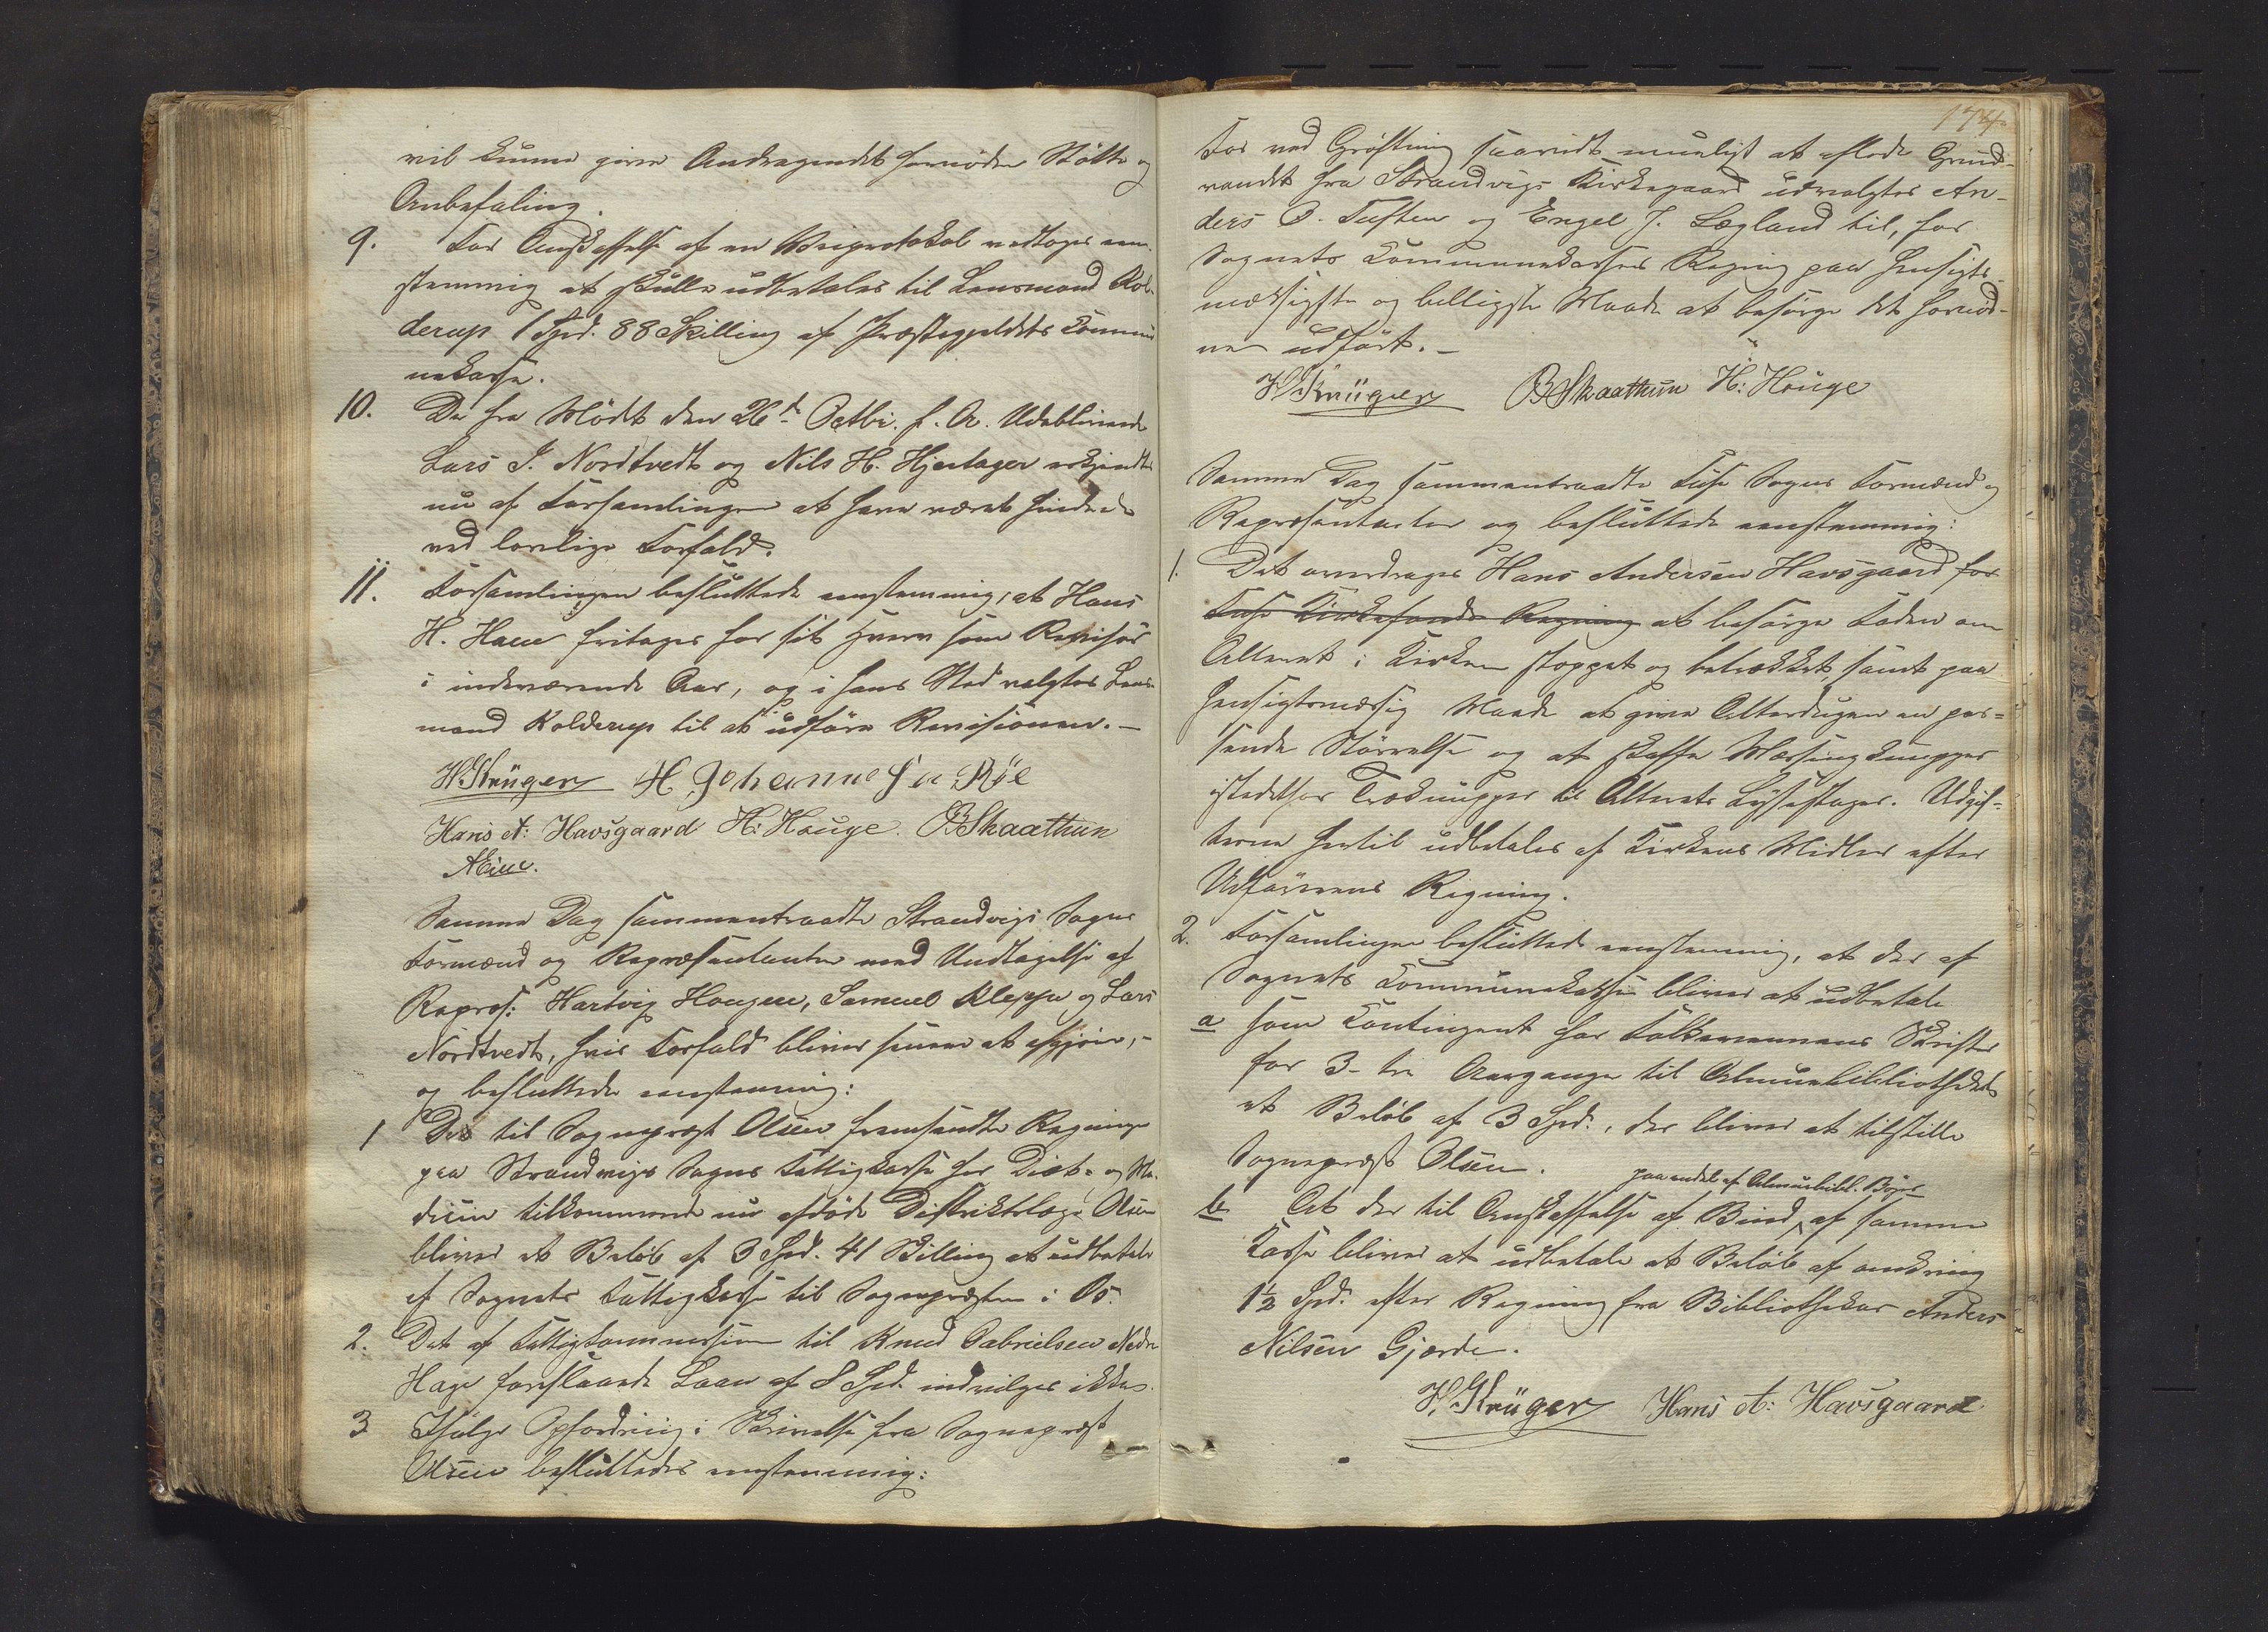 vil kunne give Andragendet fornøden Støtte og
Anbefaling.
9. For Anskaffelse af en Veiprotokol vedtoges een-
stemmig at skulle udbetales til Lensmand Kol-
derup 1 Spd. 88 Skilling af Præstegjeldets Commu-
nekasse.
10. De fra Mødet den 26d Octbr. f. A. Udeblivende
Lars J. Nordtvedt og Nils H. Hjertager erkjendtes
nu af Forsamlingen at have været hindrede
ved lovlige Forfald.
11. Forsamlingen besluttede eenstemmig, at Hans
H. Haue fritages for sit Hverv som Revisor
i indeværende Aar, og i hans Sted valgtes Lens-
mand Kolderup til at udføre Revisionen. –
H. Krüger H Johannesen Røe
Hans A: Havsgaard H: Hauge. B Skaathun
Samme Dag sammentraadte Strandvigs Sogns
Formænd og Repræsentanter med Undtagelse af
Repræs: Hartvig Hougen, Samuel Kleppe og Lars
Nordtvedt, hvis Forfald bliver senere at afgjøre, –
og besluttede eenstemmig:
1 Det til Sognepræst Olsen fremsendte Regninger
paa Strandvigs Sogns Fattigkasse for Diæt- og Me-
dicin tilkommende nu afdøde Distriktslæge Olsen
bliver et Beløb af 3 Spd. 41 Skilling at udbetale
af Sognets Fattigkasse til Sognepræsten i Os.
2. Det af Fattigkommissionen til Knud Gabrielsen Nedre
Hage foreslaaede Laan af 8 Spd. indvilges ikke.
3 Ifølge Opfordring i Skrivelse fra Sognepræst
Olsen besluttedes eenstemmig:
174
For ved Grøftning saavidt mueligt at aflede Grund-
vandet fra Strandvigs Kirkegaard udvalgtes An-
ders O. Tuften og Engel J. Lægland til, for
Sognets Communekasses Regning paa hensigts-
mæssigste og billigste Maade at besørge det fornød-
ne udført. –
H. Krüger B Skaathun H: Hauge
Samme Dag sammentraadte Fuse Sogns Formænd og
Repræsentanter og besluttede eenstemmig:
1. Det overdrages Hans Andersen Havsgaard for
Fuse Kirkefonds Regning at besørge Foden om
Alteret i Kirken stoppet og betrækket, samt paa
hensigtsmæssig Maade at give Alterdugen en pas-
sende Størrelse og at skaffe Messingknupper
istedetfor Træknupper til Alterets Lysestager. Udgif-
terne hertil udbetales af Kirkens Midler efter
Udførerens Regning.
2. Forsamlingen besluttede eenstemmig, at der af
Sognets Communekasse bliver at udbetale
a som Contingent for Folkevennens Skrifter
for 3- tre Aargange til Almuebibliotheket
et Beløb af 3 Spd., der bliver at tilstille
Sognepræst Olsen.
paa endel af Almuebibl. Bøger
b At der til Anskaffelse af Bind af samme
Kasse bliver at udbetale et Beløb af omkring
1½ Spd. efter Regning fra Bibliothekar Anders
Nilsen Gjerde.
H. Krüger Hans A: Havsgaard